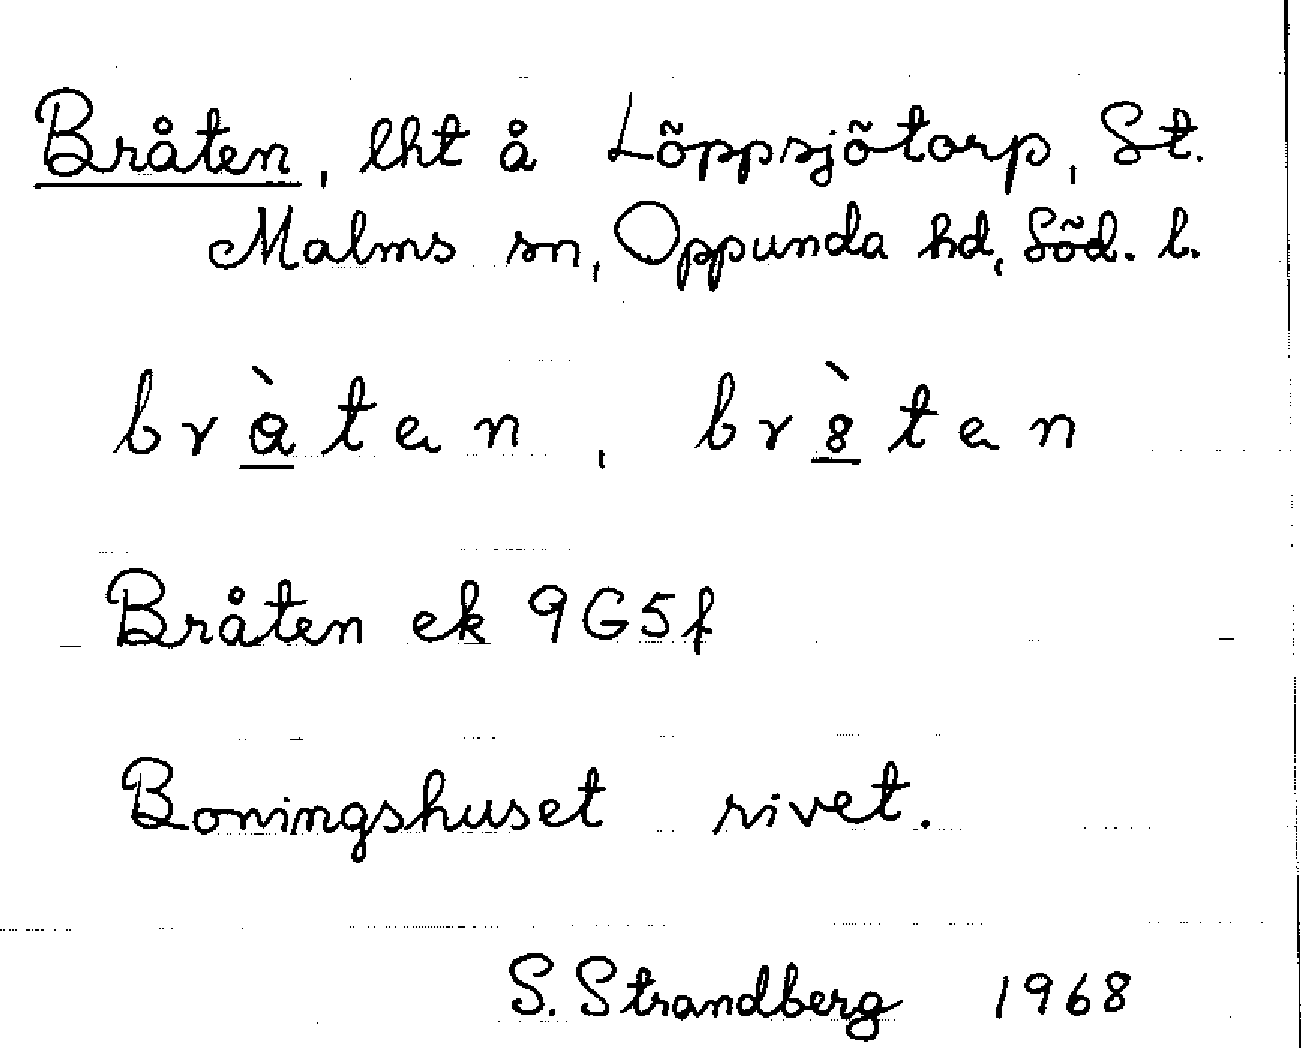 Bråten, lht å Löppsjötorp, St.
Malms sn, Oppunda hd, Söd. l.
bràten, br8̀ten
Bråten ek 9G5f
Boningshuset rivet.
S. Strandberg 1968